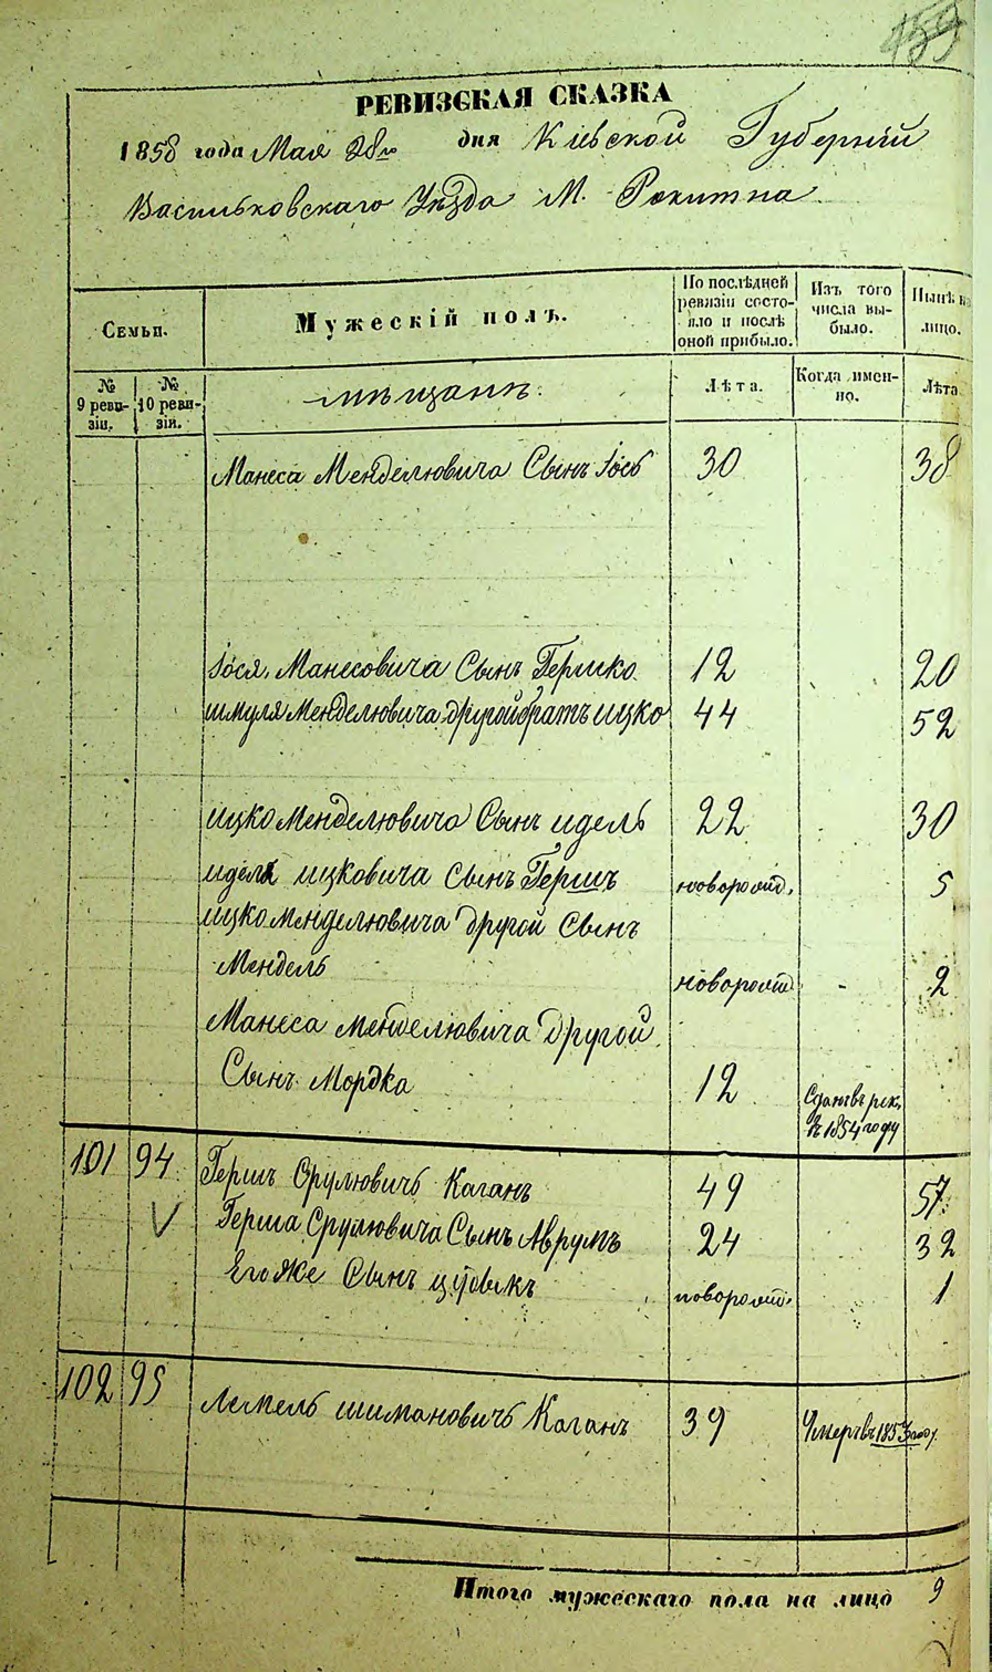 159
РЕВИЗСКАЯ СКАЗКА
1858 года Мая 28го дня Кіевской Губерніи
Васильковскаго Уѣзда М. Рокитна
Семьи.
Мужескій полъ.
По послѣдней ревизіи состояло и послѣ оной прибыло.
Изъ того числа выбыло.
Нынѣ на лицо.
№ 9 ревизіи.
№ 10 ревизіи.
мѣщанѣ.
Лѣта.
Когда именно.
Лѣта
Манеса Менделювича Сынъ Іось 30 38
Іося Манесовича Сынъ Гершко 12 20
шмуля Менделювича другой братъ ицко 44 52
ицко Менделювича Сынъ идель 22 30
иделя ицковича Сынъ Гершъ новорожд. 5
ицко менделювича другой Сынъ
Мендель новорожд. - 2
Манеса менделювича другой
Сынъ Мордка 12 Сданъ въ рек. въ 1854 году
101 94 Гершъ Срулювичъ Каганъ 49 57
Герша Срулювича Сынъ Аврумъ 24 32
Его же Сынъ новорожд. 1
102 95 Лемель шимановичъ Каганъ 39 Умеръ въ 1853 году
Итого мужескаго пола на лицо 9